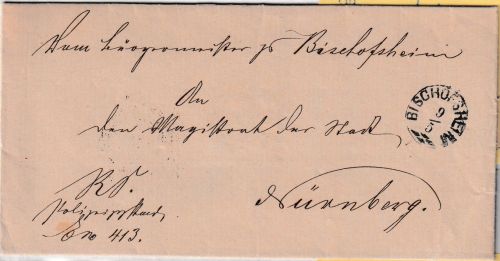 Vom Bürgermeister zu Bischofsheim
An
den Magistrat der Stadt
Nürnberg.
R.S.
No 413.
BISCHOFSHEIM
9
5